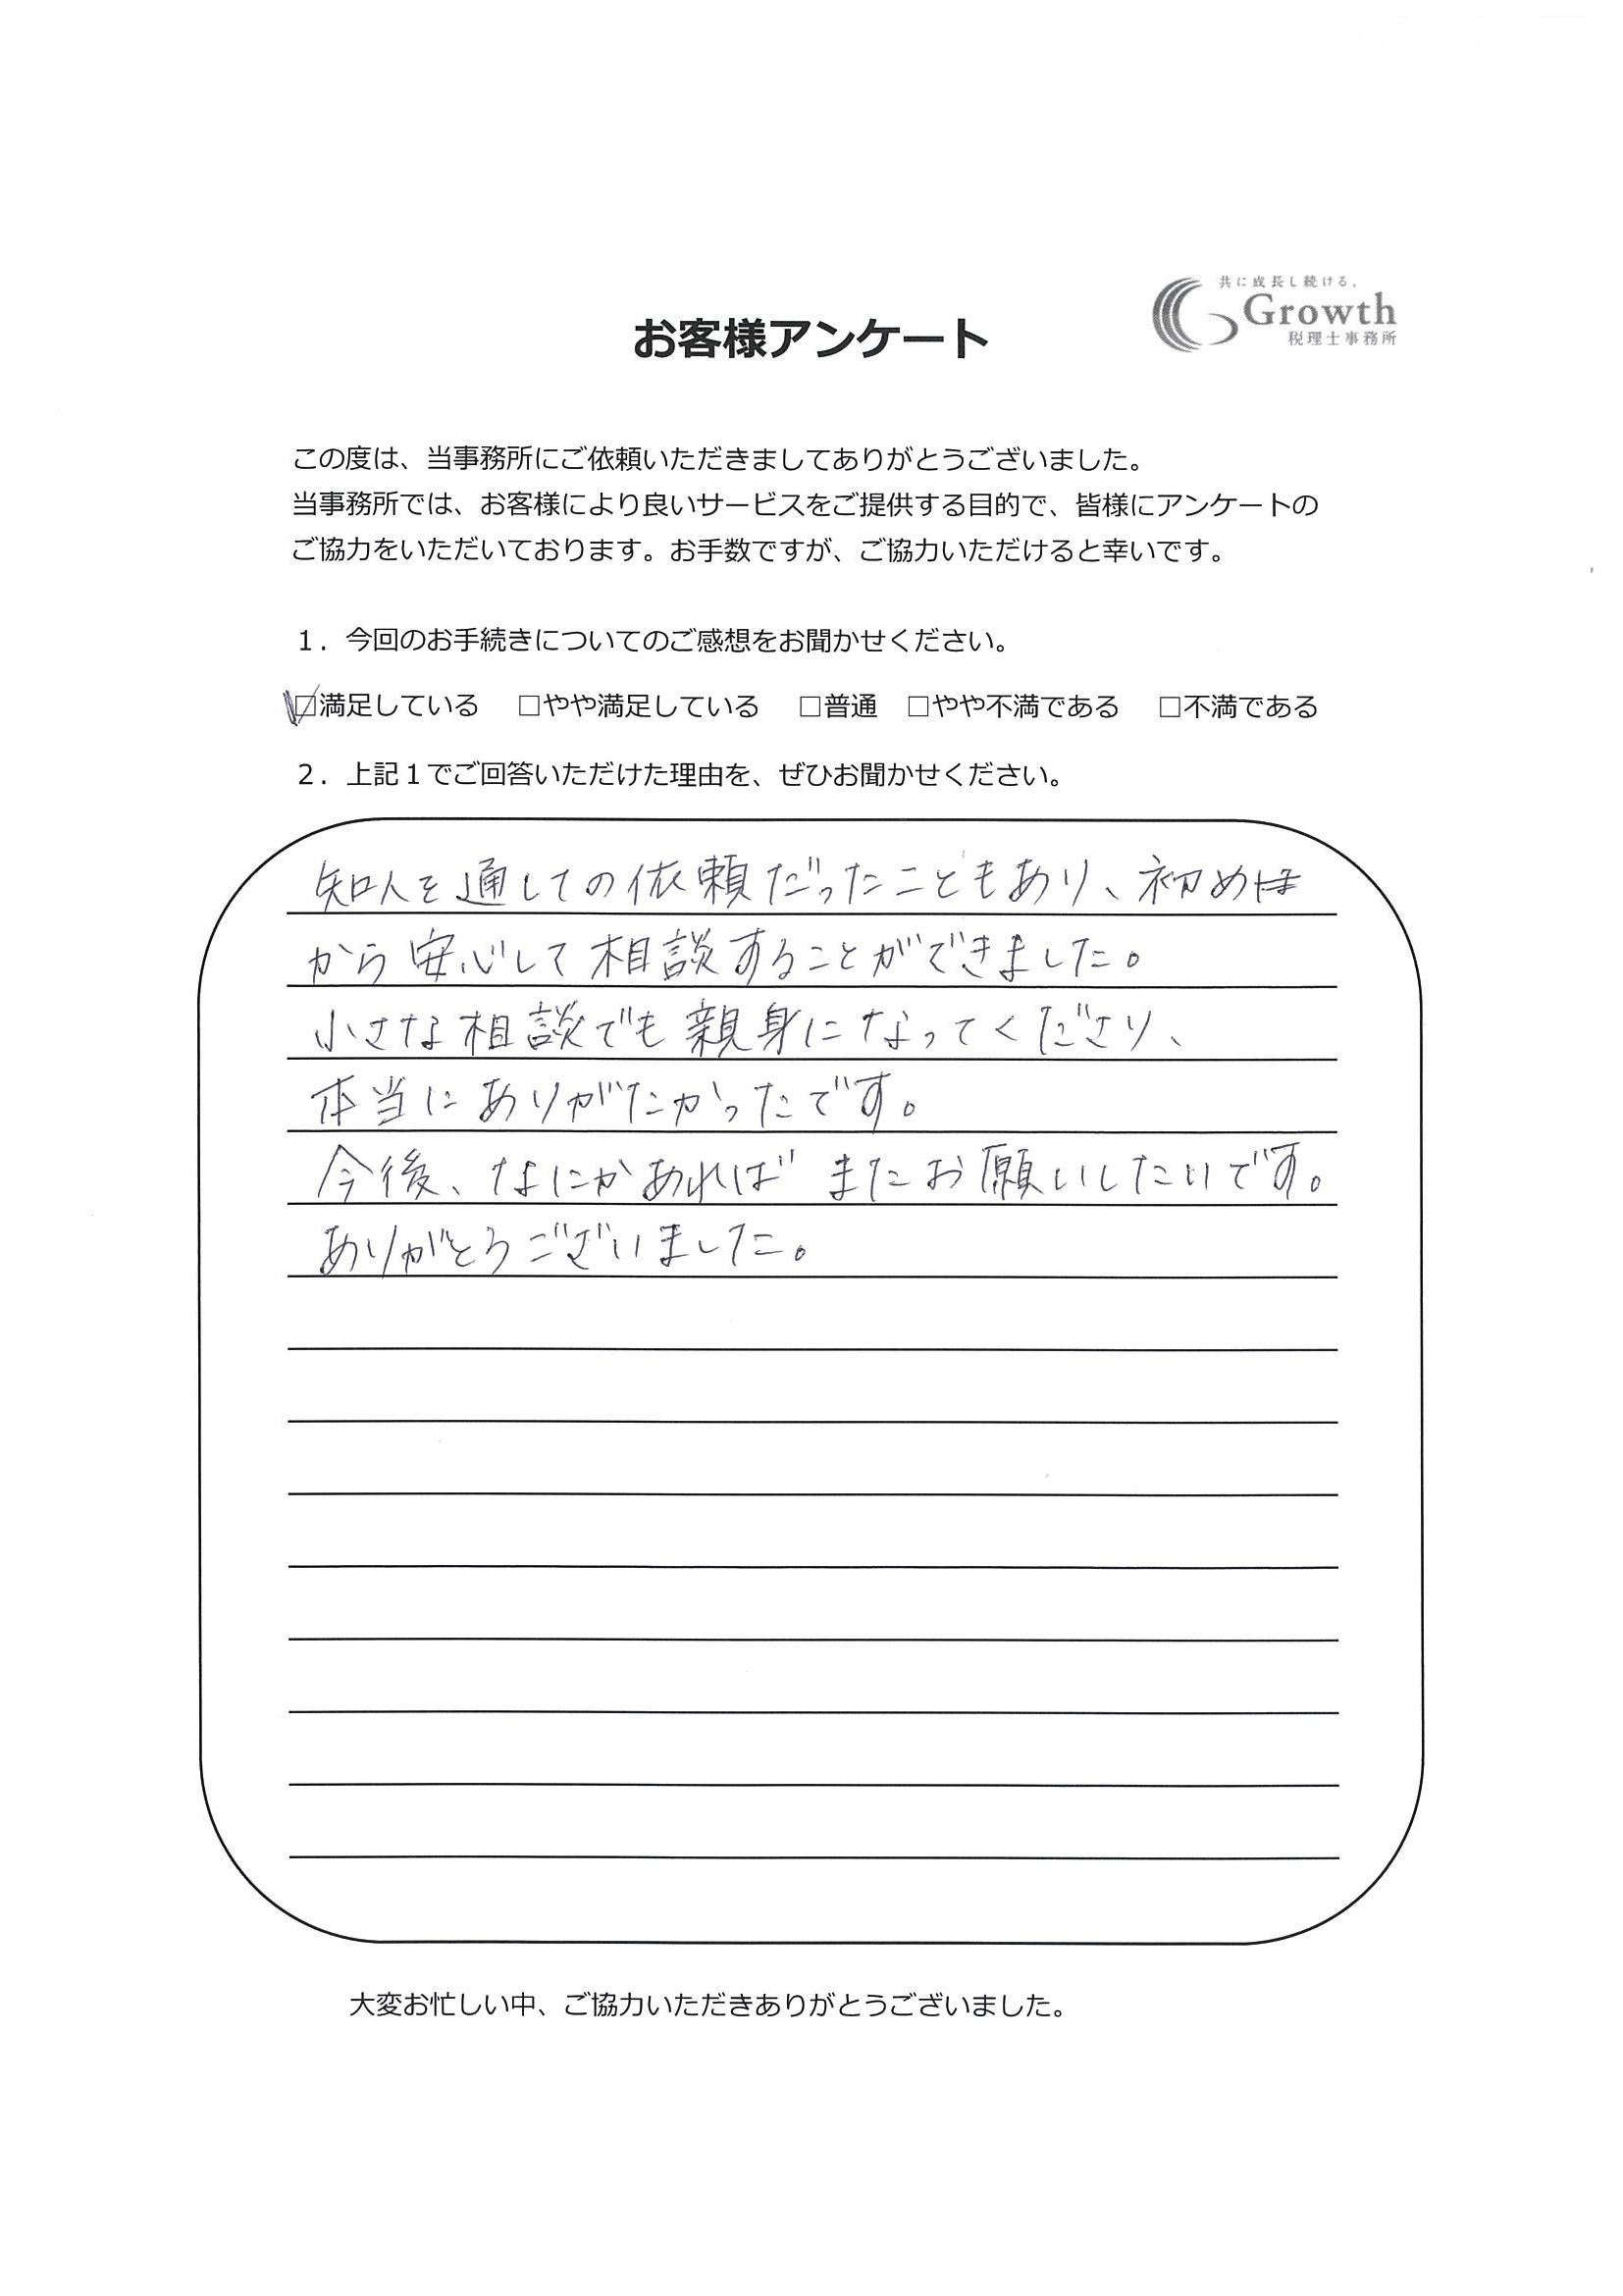 共に成長し続ける。
Growth
税理士事務所
お客様アンケート
この度は、当事務所にご依頼いただきましてありがとうございました。
当事務所では、お客様により良いサービスをご提供する目的で、皆様にアンケートの
ご協力をいただいております。お手数ですが、ご協力いただけると幸いです。
1．今回のお手続きについてのご感想をお聞かせください。
☑満足している　□やや満足している　□普通　□やや不満である　□不満である
2．上記1でご回答いただけた理由を、ぜひお聞かせください。
知人を通しての依頼だったこともあり、初め
から安心して相談することができました。
小さな相談でも親身になってくださり、
本当にありがたかったです。
今後、なにかあればまたお願いしたいです。
ありがとうございました。
大変お忙しい中、ご協力いただきありがとうございました。